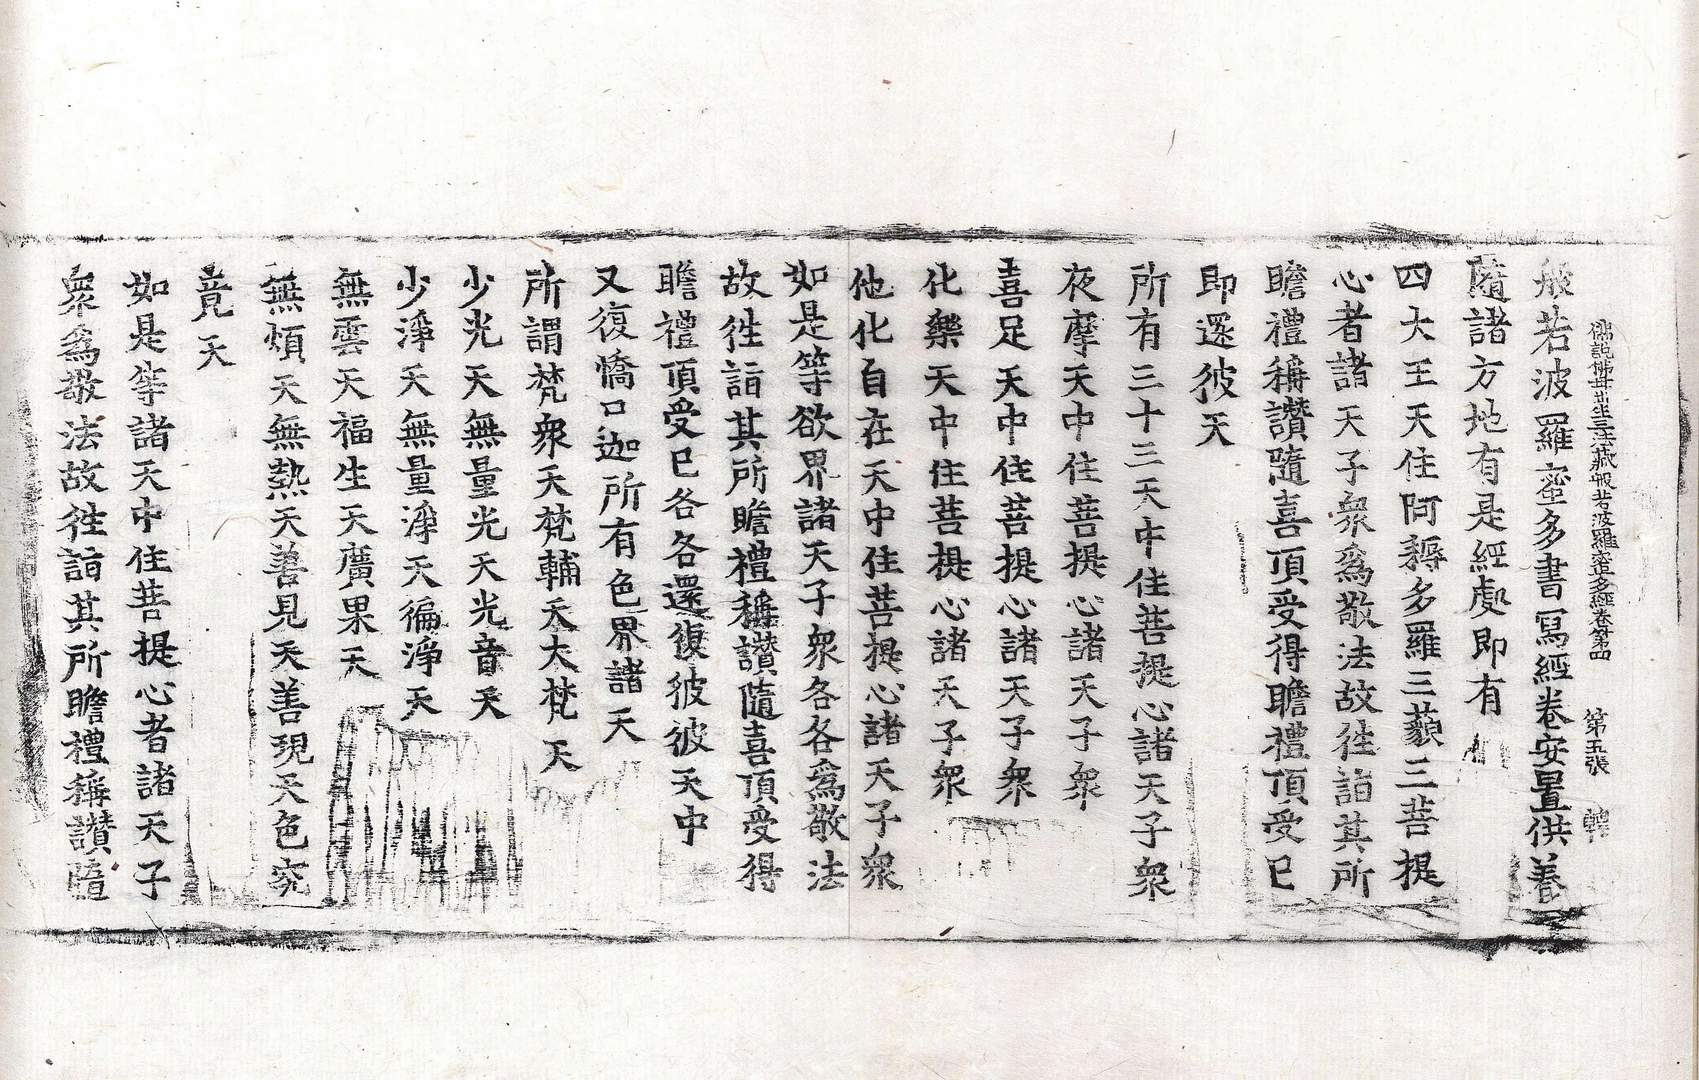 佛說佛母出生三法藏般若波羅蜜多經卷第四 第五張 轉
般若波羅蜜多書寫經卷安置供養
隨諸方地有是經處即有
四大王天住阿耨多羅三藐三菩提
心者諸天子衆爲敬法故徃詣其所
瞻禮稱讃隨喜頂受得瞻禮頂受已
即還彼天
所有三十三天中住菩提心諸天子衆
夜摩天中住菩提心諸天子衆
喜足天中住菩提心諸天子衆
化樂天中住菩提心諸天子衆
他化自在天中住菩提心諸天子衆
如是等欲界諸天子衆各各爲敬法
故徃詣其所瞻禮稱讃隨喜頂受得
瞻禮頂受已各各還復彼彼天中
又復憍尸迦所有色界諸天
所謂梵衆天梵輔天大梵天
少光天無量光天光音天
少淨天無量淨天徧淨天
無雲天福生天廣果天
無煩天無熱天善見天善現天色究
竟天
如是等諸天中住菩提心者諸天子
衆爲敬法故徃詣其所瞻禮稱讃隨